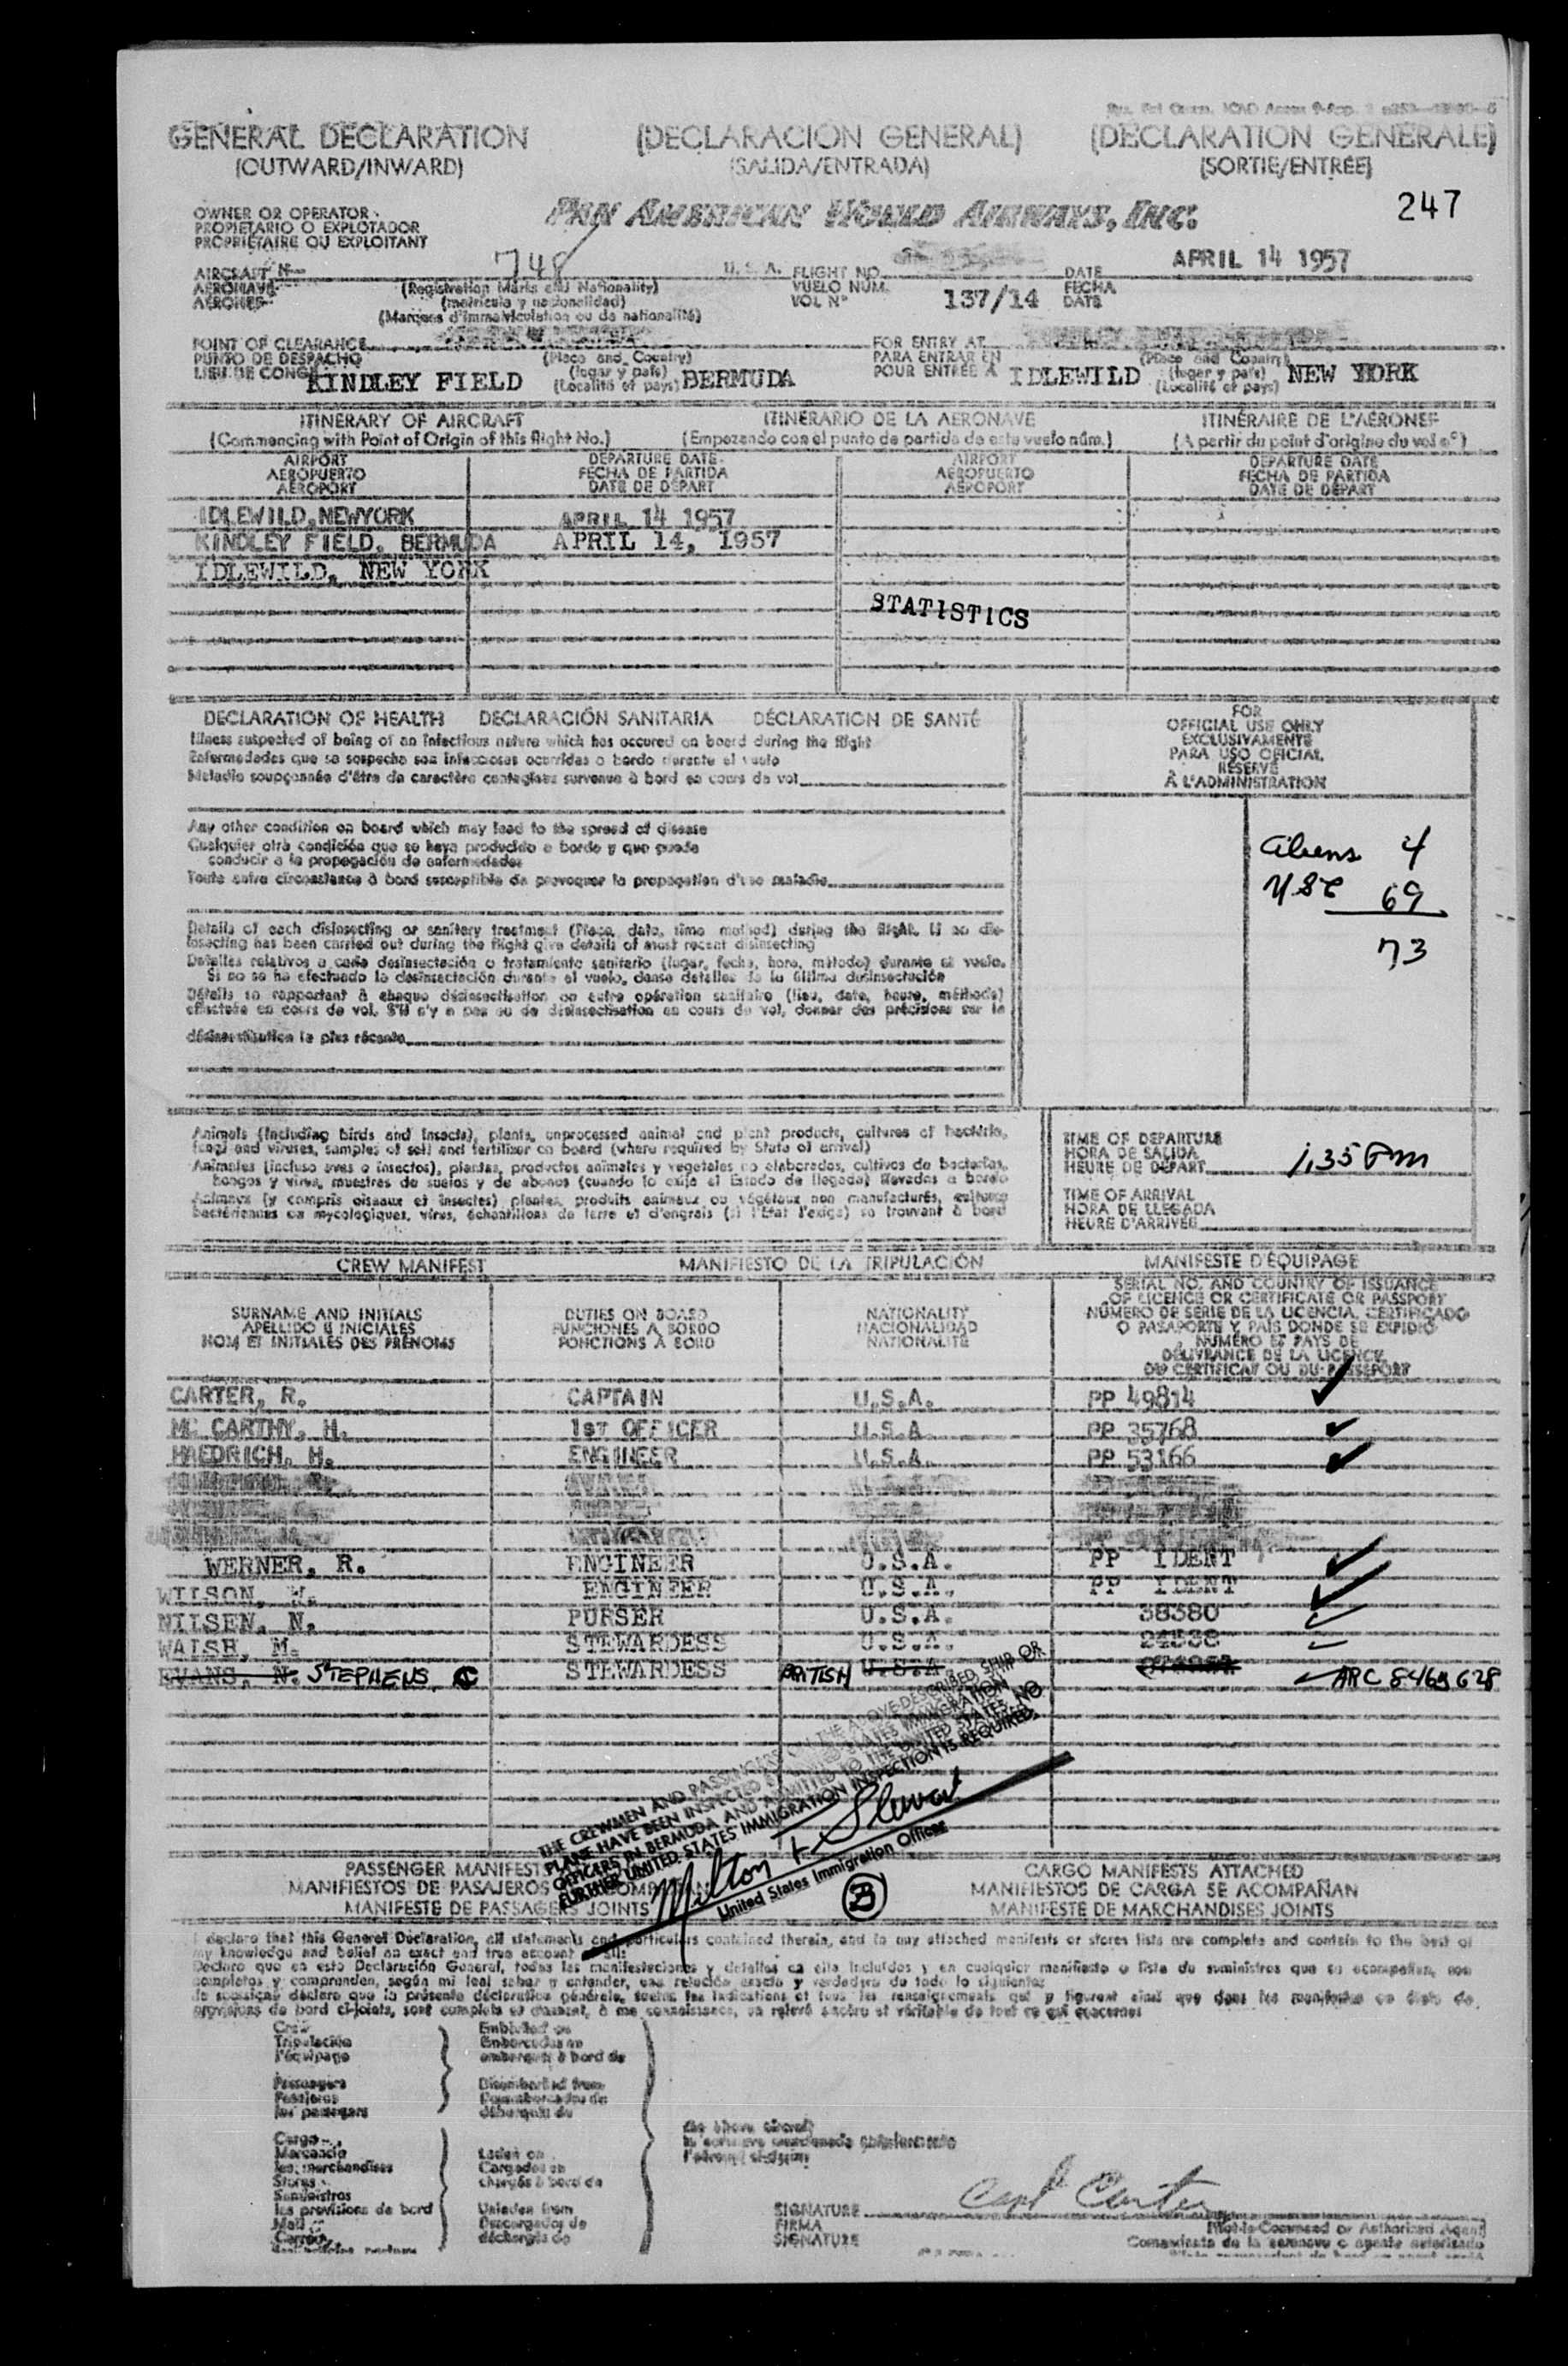 GENERAL DECLARATION (DECLARACIÓN GENERAL) (DECLARATION GENERALE)
(OUTWARD/INWARD) (SALIDA/ENTRADA) (SORTIE/ENTRÉE)
OWNER OR OPERATOR PAN AMERICAN WORLD AIRWAYS, INC. 247
PROPIETARIO O EXPLOTADOR
PROPRIÉTAIRE OU EXPLOITANT
AIRCRAFT N 748 U.S.A. FLIGHT NO. DATE APRIL 14 1957
AERONAVE (Registration Marks and Nationality) VUELO NÚM. 137/14 FECHA
AÉRONEF (matrícula y nacionalidad) VOL Nº DATE
(Marques d'immatriculation ou de nationalité)
POINT OF CLEARANCE FOR ENTRY AT
PUNTO DE DESPACHO (Place and Country) PARA ENTRAR EN (Place and Country)
LIEU DE CONGÉ KINDLEY FIELD (lugar y país) BERMUDA POUR ENTRÉE À IDLEWILD (lugar y país) NEW YORK
(Localité et pays) (Localité et pays)
ITINERARY OF AIRCRAFT ITINERARIO DE LA AERONAVE ITINÉRAIRE DE L'AÉRONEF
(Commencing with Point of Origin of this flight No.) (Empezando con el punto de partida de este vuelo núm.) (A partir du point d'origine du vol nº)
AIRPORT DEPARTURE DATE AIRPORT DEPARTURE DATE
AEROPUERTO FECHA DE PARTIDA AEROPUERTO FECHA DE PARTIDA
AÉROPORT DATE DE DÉPART AÉROPORT DATE DE DÉPART
IDLEWILD, NEWYORK APRIL 14 1957
KINDLEY FIELD, BERMUDA APRIL 14, 1957
IDLEWILD, NEW YORK
STATISTICS
DECLARATION OF HEALTH DECLARACIÓN SANITARIA DÉCLARATION DE SANTÉ
Illness suspected of being of an infectious nature which has occured on board during the flight
Enfermedades que se sospecha son infecciosas ocurridas a bordo durante el vuelo
Maladie soupçonnée d'être de caractère contagieux survenue à bord en cours de vol
FOR
OFFICIAL USE ONLY
EXCLUSIVAMENTE
PARA USO OFICIAL
RÉSERVÉ
À L'ADMINISTRATION
Any other condition on board which may lead to the spread of disease
Cualquier otra condición que se haya producido a bordo y que pueda
conducir a la propagación de enfermedades
Toute autre circonstance à bord susceptible de provoquer la propagation d'une maladie
Aliens 4
USC 69
73
Details of each disinsecting or sanitary treatment (Place, date, time method) during the flight. If no dis-
insecting has been carried out during the flight give details of most recent disinsecting
Detalles relativos a cada desinsectación o tratamiento sanitario (lugar, fecha, hora, método) durante el vuelo.
Si no se ha efectuado la desinsectación durante el vuelo, dense detalles de la última desinsectación
Détails se rapportant à chaque désinsectisation ou autre opération sanitaire (lieu, date, heure, méthode)
effectuée en cours de vol. S'il n'y a pas eu de désinsectisation en cours de vol, donner des précisions sur la
désinsectisation la plus récente
Animals (including birds and insects), plants, unprocessed animal and plant products, cultures of bacteria,
fungi and viruses, samples of soil and fertilizer on board (where required by State of arrival)
Animales (incluso aves o insectos), plantas, productos animales y vegetales no elaborados, cultivos de bacterias,
hongos y virus, muestras de suelos y de abonos (cuando lo exija el Estado de llegada) llevadas a bordo
Animaux (y compris oiseaux et insectes) plantes, produits animaux ou végétaux non manufacturés, cultures
bactériennes ou mycologiques, virus, échantillons de terre et d'engrais (si l'État l'exige) se trouvant à bord
TIME OF DEPARTURE
HORA DE SALIDA
HEURE DE DÉPART 1,35 Pm
TIME OF ARRIVAL
HORA DE LLEGADA
HEURE D'ARRIVÉE
CREW MANIFEST MANIFIESTO DE LA TRIPULACIÓN MANIFESTE D'ÉQUIPAGE
SURNAME AND INITIALS DUTIES ON BOARD NATIONALITY
APELLIDO E INICIALES FUNCIONES A BORDO NACIONALIDAD
NOM ET INITIALES DES PRÉNOMS FONCTIONS À BORD NATIONALITÉ
SERIAL NO. AND COUNTRY OF ISSUANCE
OF LICENCE OR CERTIFICATE OR PASSPORT
NÚMERO DE SERIE DE LA LICENCIA, CERTIFICADO
O PASAPORTE Y PAÍS DONDE SE EXPIDIÓ
NUMÉRO ET PAYS DE
DÉLIVRANCE DE LA LICENCE
DU CERTIFICAT OU DU PASSEPORT
CARTER, R. CAPTAIN U.S.A. PP 49814
MC CARTHY, H. 1ST OFFICER U.S.A. PP 35768
HAEDRICH, H. ENGINEER U.S.A. PP 53166
WERNER, R. ENGINEER U.S.A. PP IDENT
WILSON, W. ENGINEER U.S.A. PP IDENT
NILSEN, N. PURSER U.S.A. 38380
WALSH, M. STEWARDESS U.S.A. 24538
EVANS, N. STEPHENS C STEWARDESS BRITISH U.S.A. ARC 8469628
THE CREWMEN AND PASSENGERS ON THE ABOVE DESCRIBED SHIP OR
PLANE HAVE BEEN INSPECTED BY UNITED STATES IMMIGRATION
OFFICERS IN BERMUDA AND ADMITTED TO THE UNITED STATES. NO
FURTHER UNITED STATES IMMIGRATION INSPECTION IS REQUIRED.
Milton Stewart
United States Immigration Officer
B
PASSENGER MANIFESTS CARGO MANIFESTS ATTACHED
MANIFIESTOS DE PASAJEROS MANIFIESTOS DE CARGA SE ACOMPAÑAN
MANIFESTE DE PASSAGERS JOINTS MANIFESTE DE MARCHANDISES JOINTS
I declare that this General Declaration, all statements and particulars contained therein, and in any attached manifests or stores lists are complete and contain to the best of
my knowledge and belief an exact and true account of all:
Declaro que en esta Declaración General, todas las manifestaciones y detalles en ella incluídos y en cualquier manifiesto o lista de suministros que se acompañan, son
completos y comprenden, según mi leal saber y entender, una relación exacta y verdadera de todo lo siguiente:
Crew
Tripulación
l'équipage
Passengers
Pasajeros
les passagers
Embarked on
Embarcados en
embarqués à bord de
Disembarked from
Desembarcados de
débarqués de
Cargo
Mercancía
les marchandises
Stores
Suministros
les provisions de bord
Mail
Correo
Laden on
Cargados en
chargés à bord de
Unladen from
Descargados de
déchargés de
the above aircraft
SIGNATURE Capt Carter
FIRMA
SIGNATURE
Pilot-in-Command or Authorized Agent
Comandante de la aeronave o agente autorizado